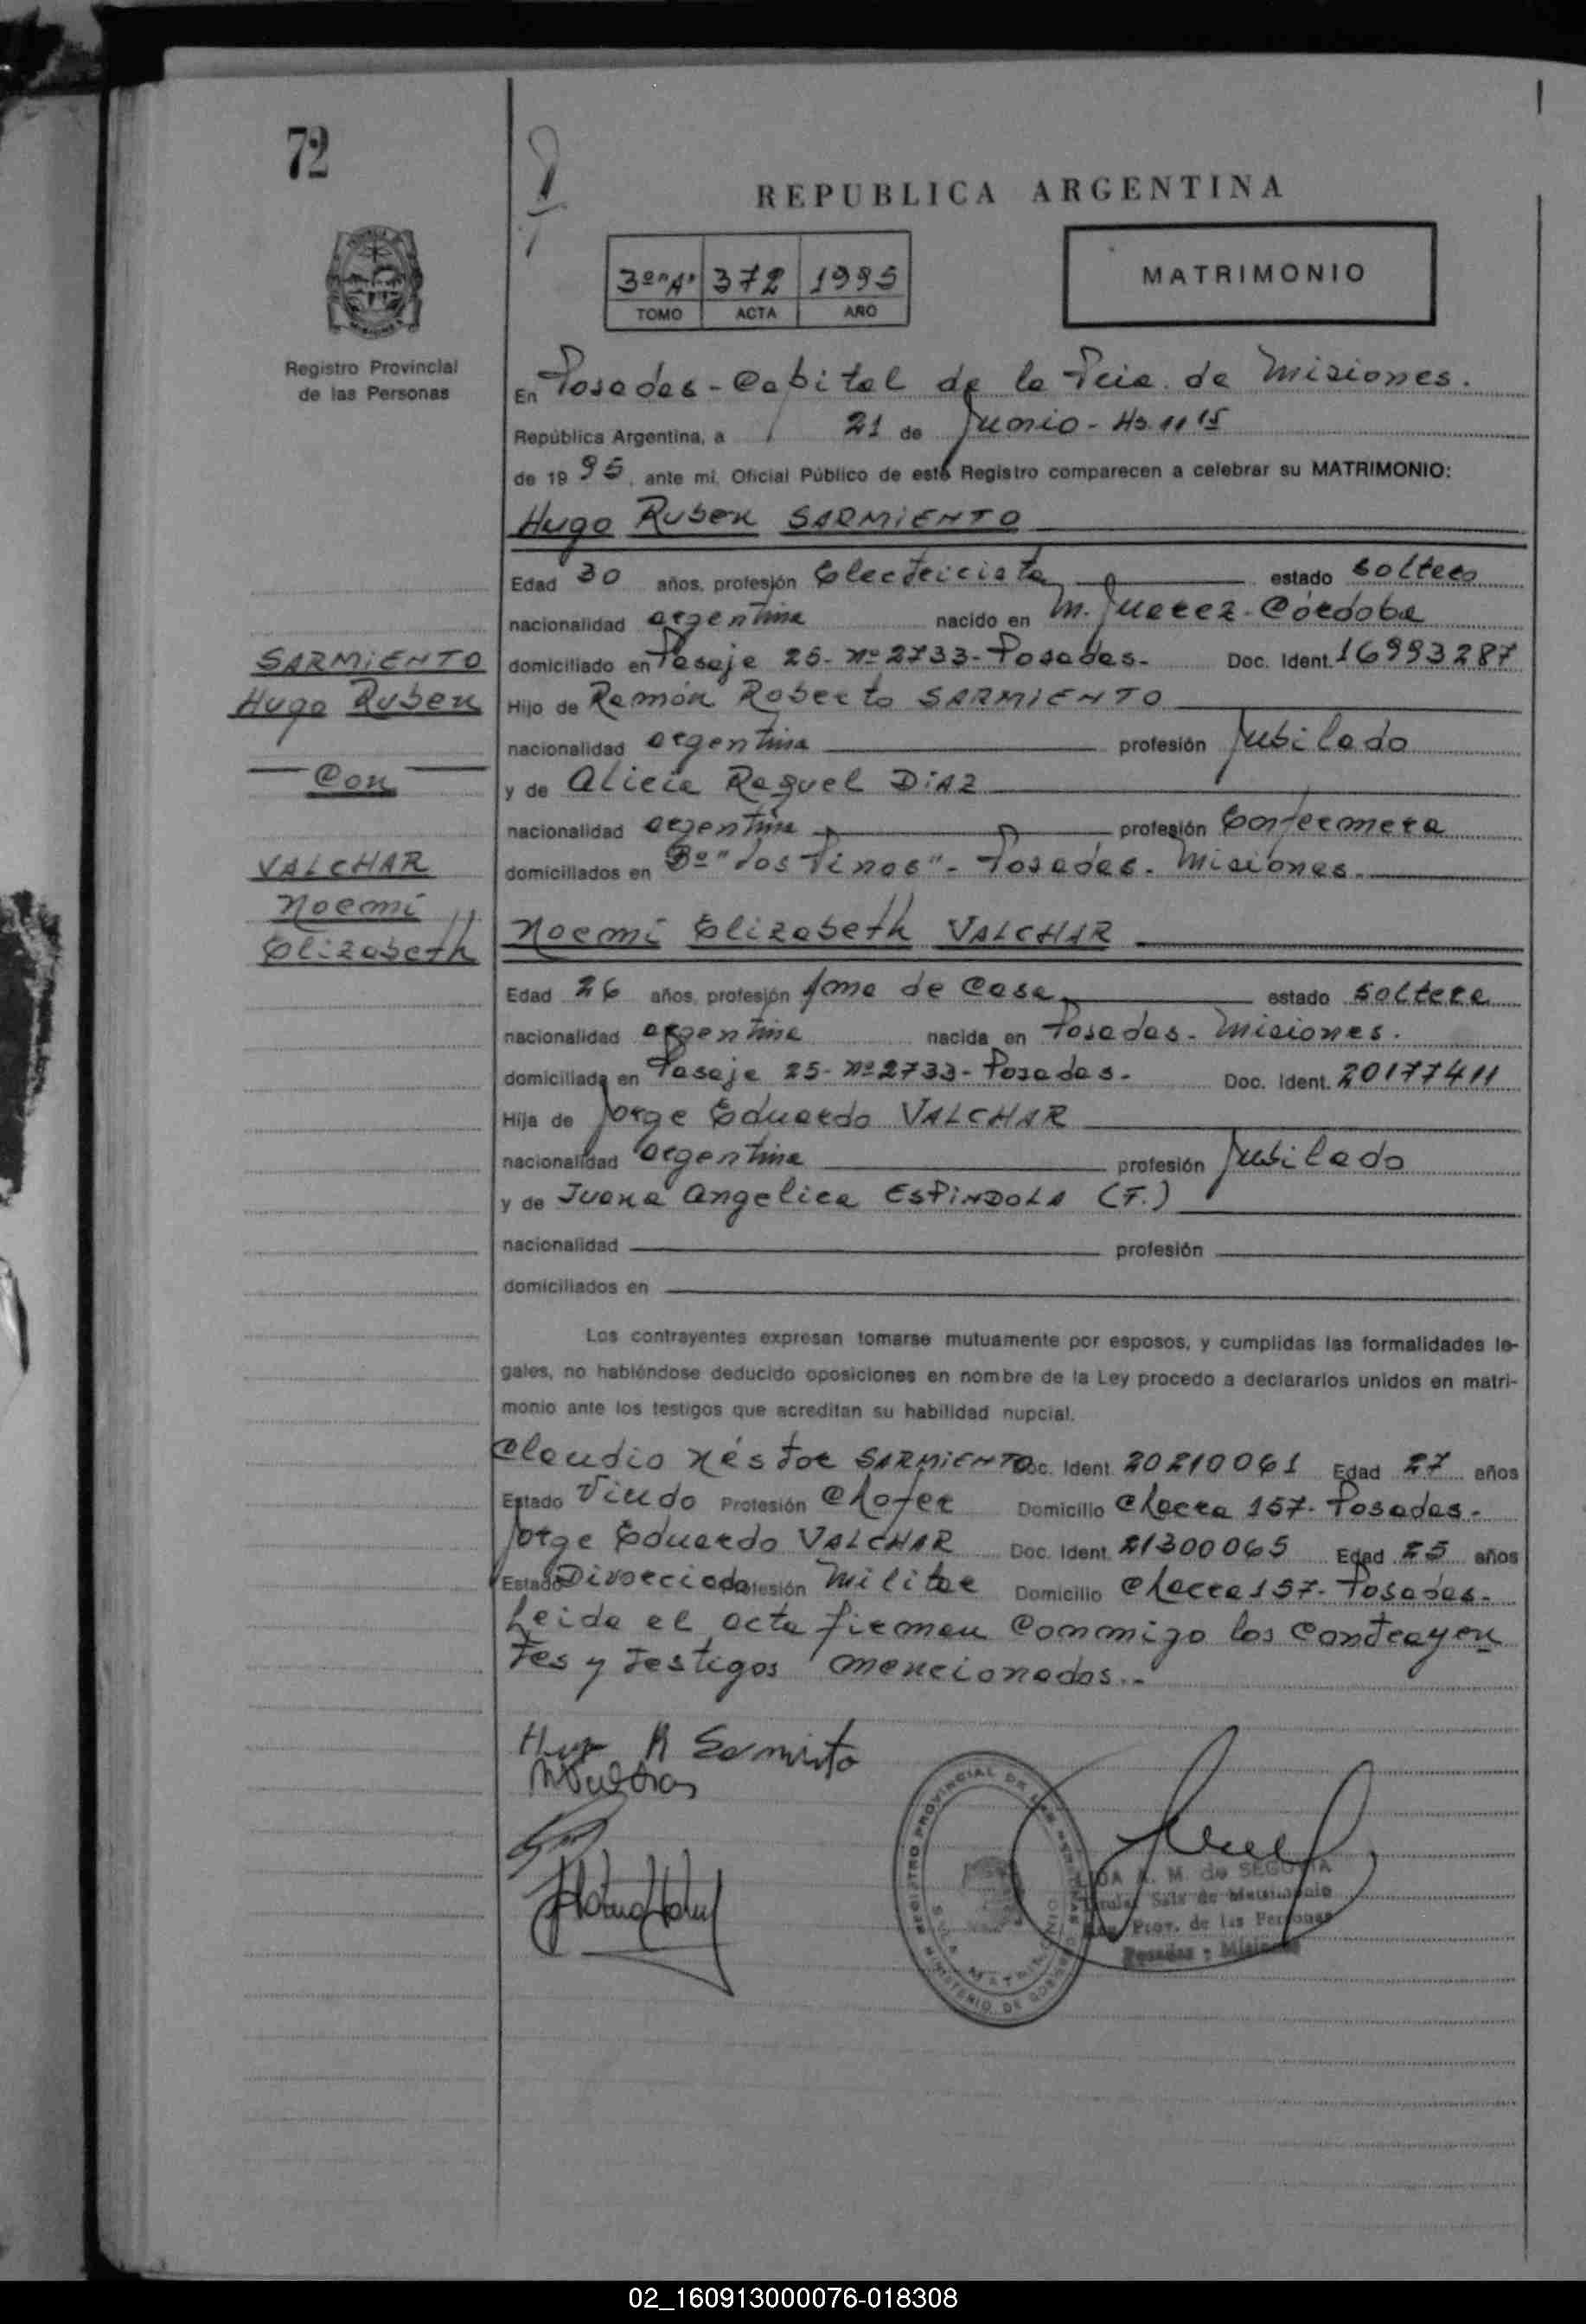 72
REPUBLICA ARGENTINA
3º "A" 372 1995
TOMO ACTA AÑO
MATRIMONIO
Registro Provincial
de las Personas
En Posadas - Capital de la Pcia. de Misiones.
República Argentina, a 21 de Junio - Hs. 11 15
de 19 95, ante mi, Oficial Público de este Registro comparecen a celebrar su MATRIMONIO:
Hugo Ruben SARMIENTO
Edad 30 años, profesión Electricista estado soltero
nacionalidad argentina nacido en M. Juarez - Córdoba
SARMIENTO
domiciliado en Pasaje 25 - Nº 2733 - Posadas - Doc. Ident. 16993287
Hugo Ruben
Hijo de Ramón Roberto SARMIENTO
nacionalidad argentina profesión Jubilado
Con
y de Alicia Raquel DIAZ
nacionalidad argentina profesión Enfermera
VALCHAR
domiciliados en Bº "Los Pinos" - Posadas - Misiones.
Noemi
Elizabeth
Noemi Elizabeth VALCHAR
Edad 26 años, profesión Ama de Casa estado soltera
nacionalidad argentina nacida en Posadas - Misiones.
domiciliada en Pasaje 25 - Nº 2733 - Posadas - Doc. Ident. 20177411
Hija de Jorge Eduardo VALCHAR
nacionalidad argentina profesión Jubilado
y de Juana Angelica ESPINDOLA (F.)
nacionalidad profesión
domiciliados en
Los contrayentes expresan tomarse mutuamente por esposos, y cumplidas las formalidades le-
gales, no habiéndose deducido oposiciones en nombre de la Ley procedo a declararlos unidos en matri-
monio ante los testigos que acreditan su habilidad nupcial.
Claudio Néstor SARMIENTO Doc. Ident. 20210061 Edad 27 años
Estado Viudo Profesión Chofer Domicilio Chacra 157 - Posadas -
Jorge Eduardo VALCHAR Doc. Ident. 21300065 Edad 25 años
Estado Divorciado Profesión Militar Domicilio Chacra 157 - Posadas -
Leida el acta firman conmigo los contrayen
tes y testigos mencionados.-
Hugo R Sarmiento
REGISTRO PROVINCIAL DE LAS PERSONAS
SALA MATRIMONIO
MINISTERIO DE GOBIERNO
A. M. de SEGOVIA
Titular Sala de Matrimonio
Reg. Prov. de las Personas
Posadas - Misiones
02_160913000076-018308